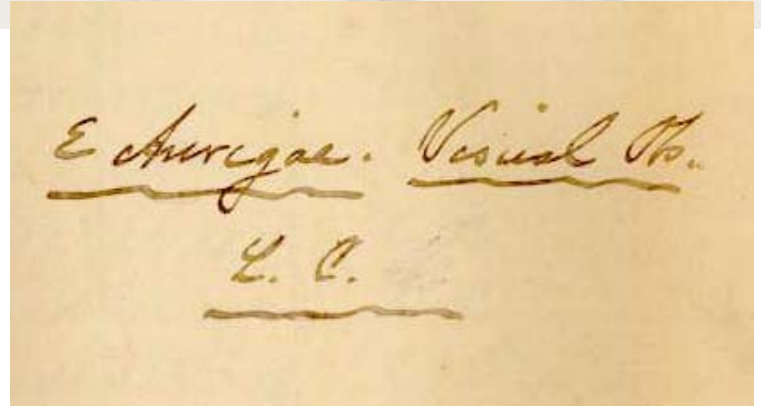 ε Aurigae. Visual Obs.
L. C.